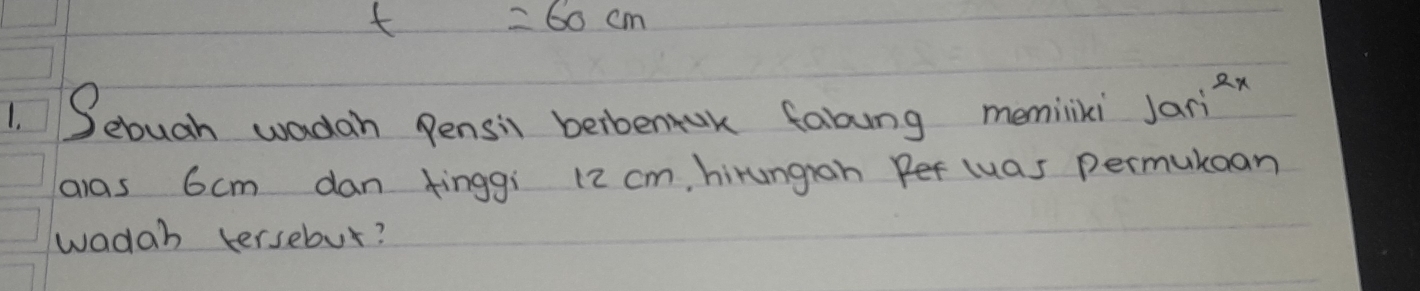 t = 60 cm
1. Sebuah wadah pensil berbentuk tabung memiliki Jari 2x
alas 6cm dan tinggi 12 cm. hitunglah luas permukaan
wadah tersebut?